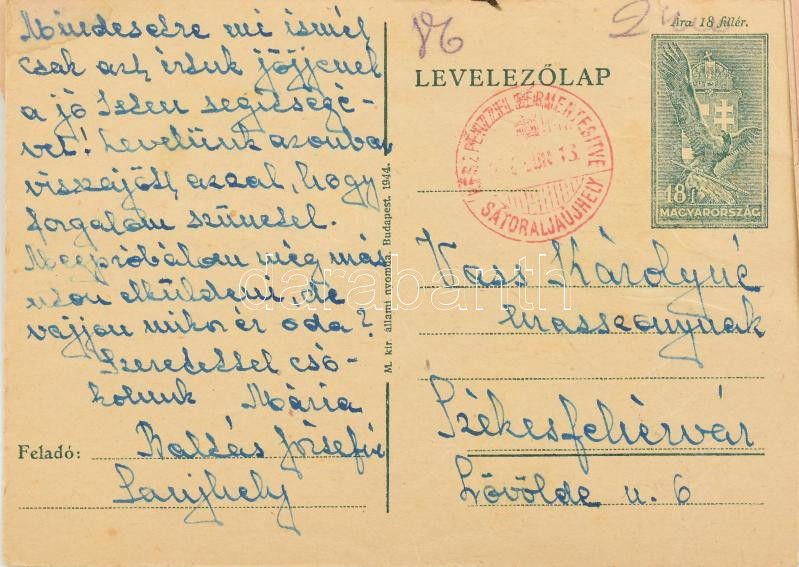 Mindesetre mi ismét
csak azt írtuk jöjjenek
a jó Isten segítségé-
vel! Levelünk azonban
visszajött azzal, hogy
forgalom szünetel.
Megpróbálom még más
uton elküldeni, de
vajjon mikor ér oda?
Szeretettel csó-
kolunk Mária
Feladó: Balzás Józsefné
Saujhely
M. kir. állami nyomda, Budapest. 1944.
Ára 18 fillér.
LEVELEZŐLAP
KÉSZPÉNZZEL BÉRMENTESITVE
13
SÁTORALJAÚJHELY
18 f
MAGYARORSZÁG
Vass Károlyné
urasszonynak
Székesfehérvár
Lövölde u. 6
darabanth